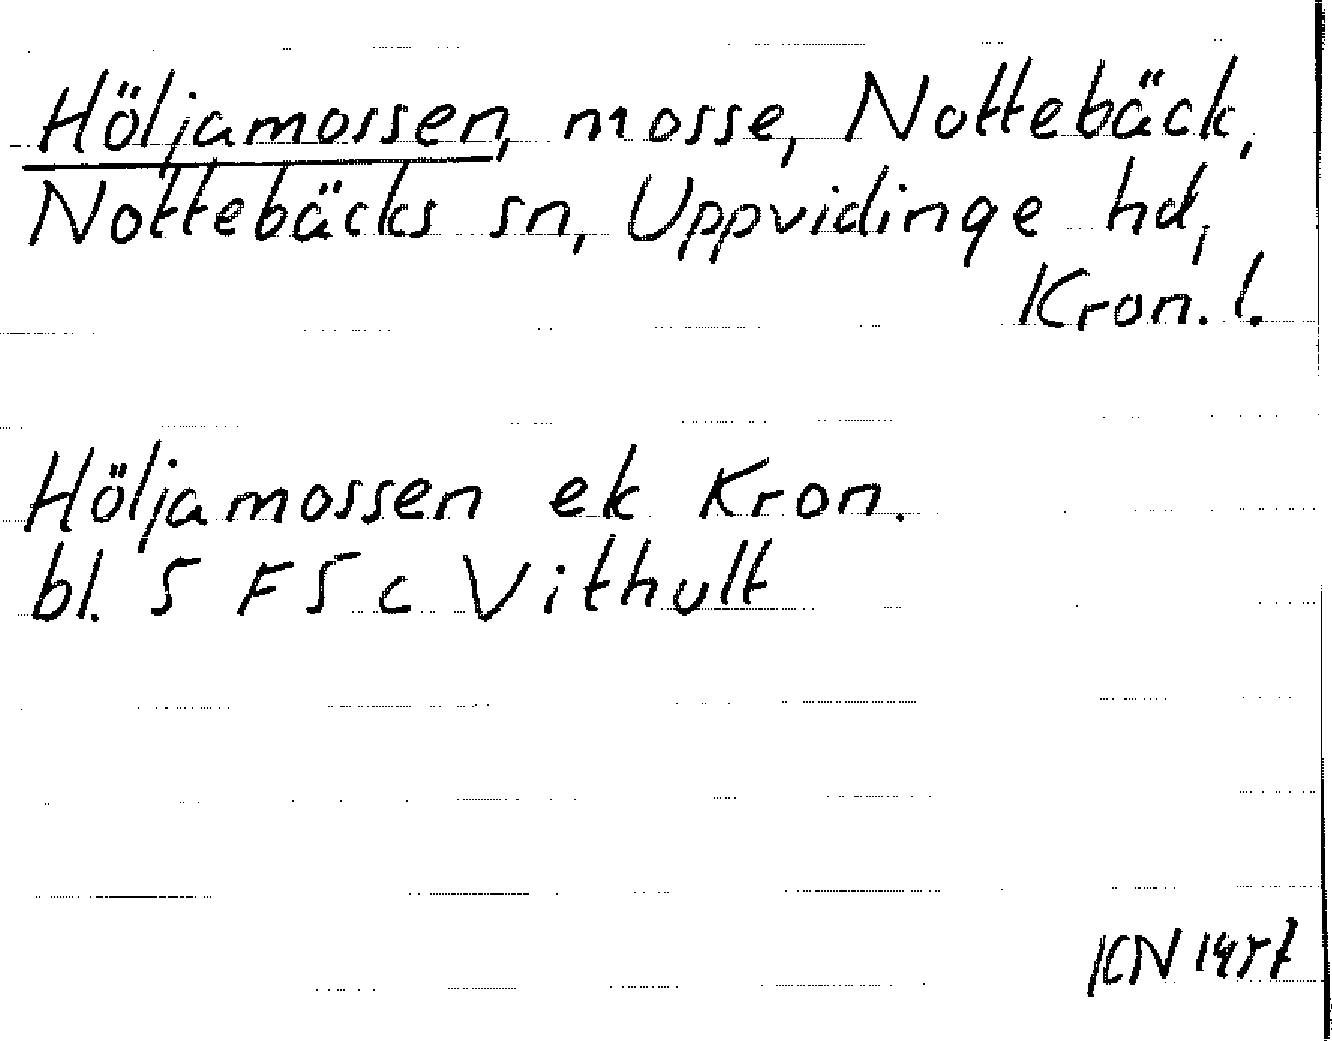 Höljamossen, mosse, Nottebäck,
Nottebäcks sn, Uppvidinge hd,
Kron. l.
Höljamossen ek Kron.
bl. 5 F 5 c Vithult
KN